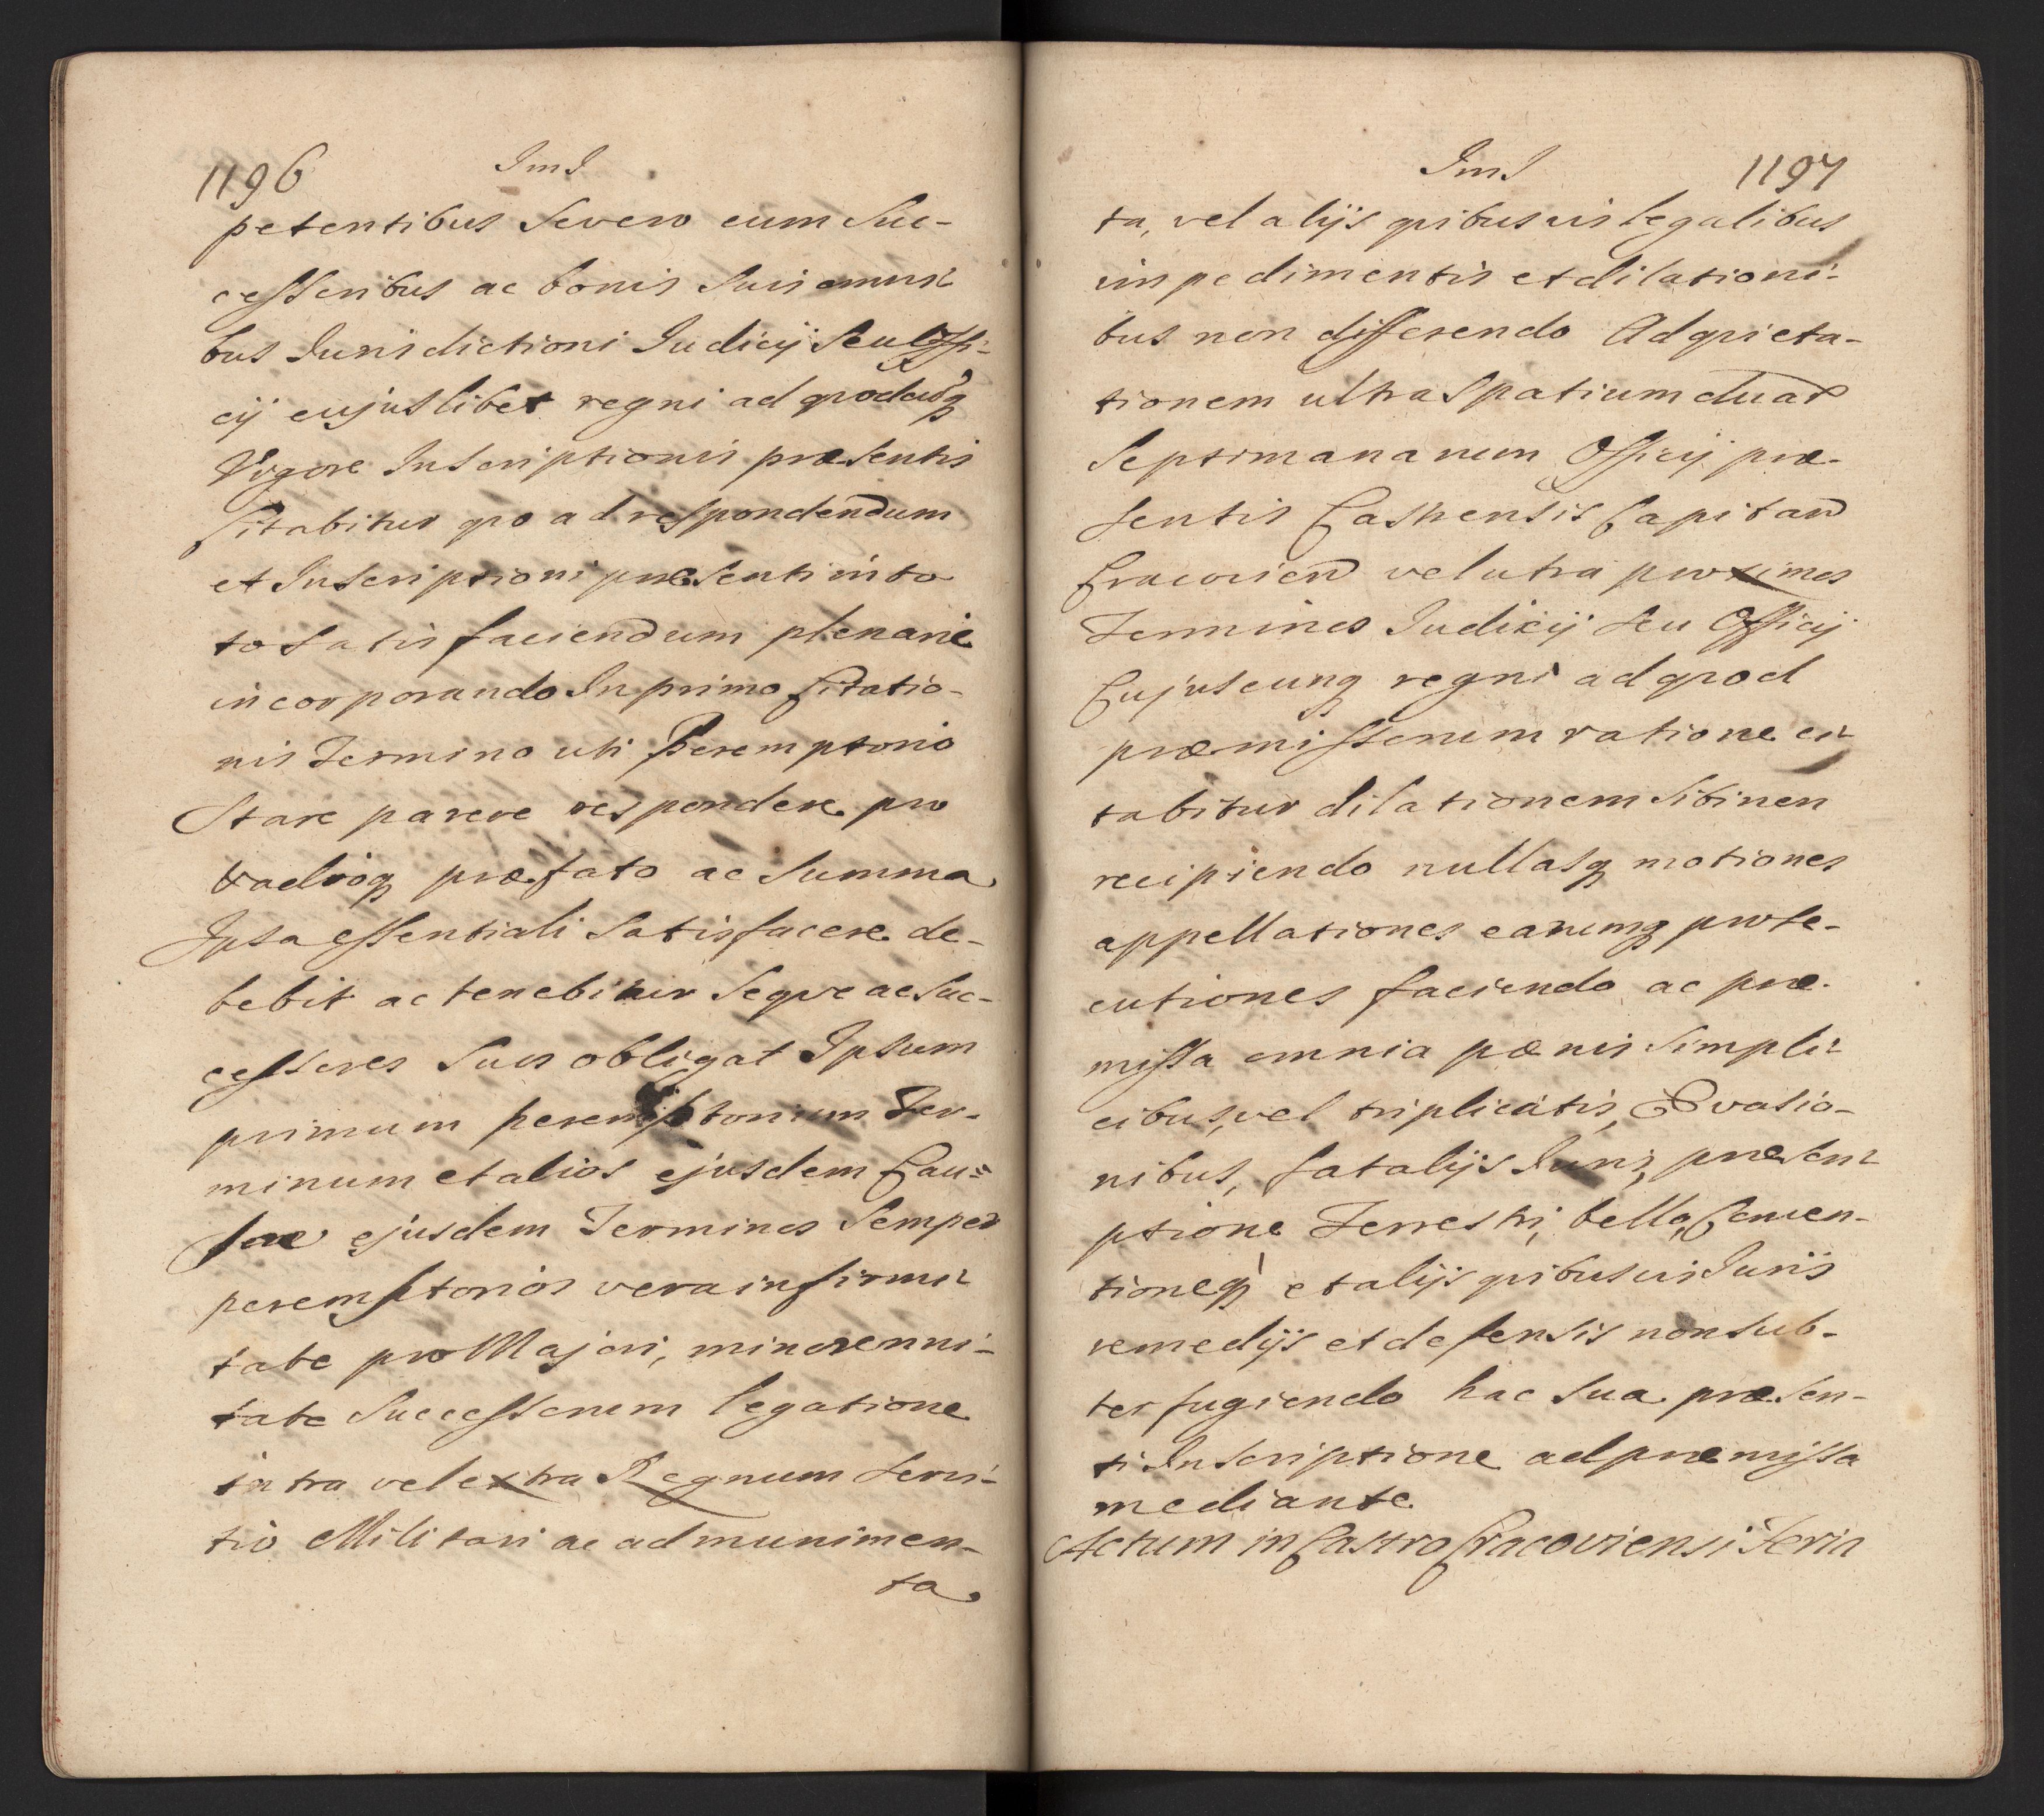 1196 JmJ
petentibus Severo cum Suc-
cessoribus ac bonis Suis omni-
bus Jurisdictioni Judicij Seu Offi-
cij cujuslibet regni ad qvodcunq
Vigore Inscriptionis præsentis
Citabitur qvo ad respondendum
et Inscriptioni præsenti in to
to Satisfaciendum plenarie
incorporando In primo Citatio-
nis Termino uti Peremptorio
Stare parere respondere pro
vadioq præfato ac Summa
Ipsa essentiali Satisfacere de-
bebit ac tenebitur Seqve ac Suc-
cessores Suos obligat Ipsum
primum peremptorium Ter-
minum et alios ejusdem Cau=
sæ ejusdem Terminos Semper
peremptorios vera infirmi-
tate pro Majori, minorenni-
tate Successorum legatione
intra vel extra Regnum Servi-
tio Militari ac ad munimen-
ta
JmJ 1197
ta, vel alijs qvibusvis legalibus
impedimentis et dilationi-
bus non differendo Ad qvieta-
tionem ultra Spatium duar
Septimanarum Officij præ-
sentis Castrensis Capitan
Cracovien vel utra proximos
Terminos Judicij seu Officij
Cujuscunq regni ad qvod
præmissorum ratione ci-
tabitur dilationem Sibi non
recipiendo nullasq motiones
appellationes earumq prose-
cutiones faciendo ac præ-
missa omnia pænis Simpli-
cibus, vel triplicatis, Evasio-
nibus, fatalijs Juris, præscri-
ptione Terrestri, bello, Conven-
tioneq et alijs qvibusvis Juris
remedijs et defensis non Sub-
terfugiendo hac Sua præsen-
ti Inscriptione ad præmissa
mediante
Actum in Castro Cracoviensi Feria